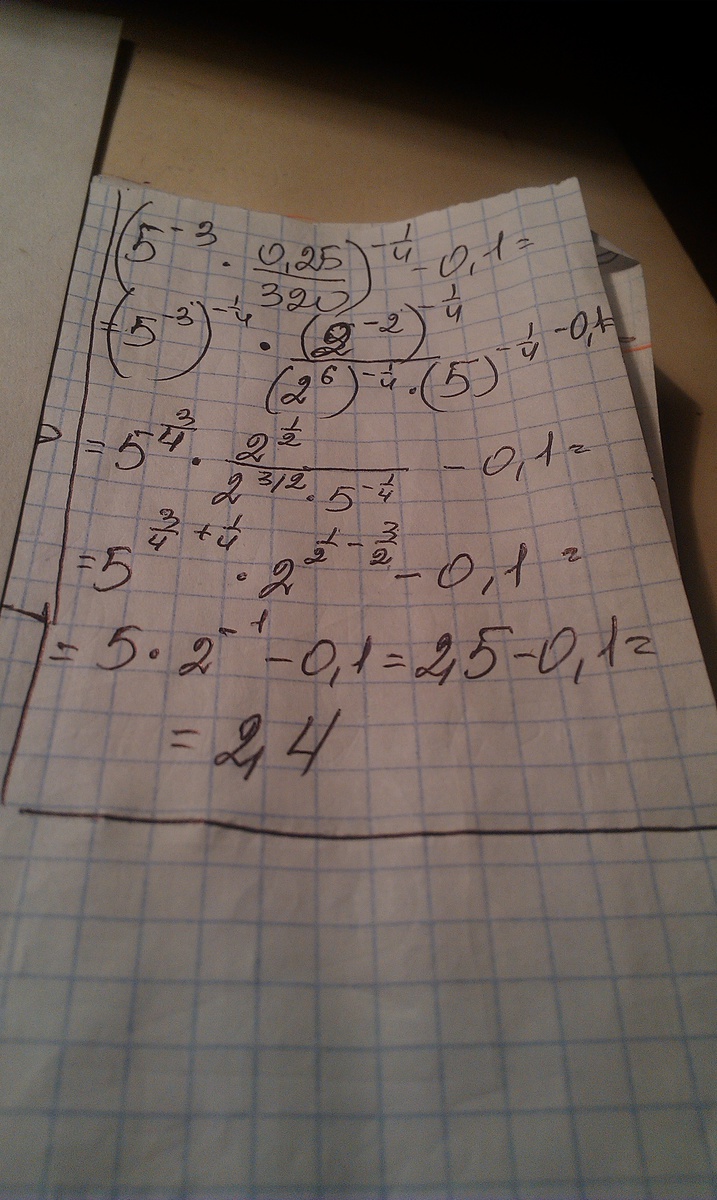 (5^{-3} · \frac{0,25}{320})^{-\frac{1}{4}} - 0,1 =
= (5^{-3})^{-\frac{1}{4}} · \frac{(2^{-2})^{-\frac{1}{4}}}{(2^{6})^{-\frac{1}{4}} · (5)^{-\frac{1}{4}}} - 0,1 =
= 5^{\frac{3}{4}} · \frac{2^{\frac{1}{2}}}{2^{3/2} · 5^{-\frac{1}{4}}} - 0,1 =
= 5^{\frac{3}{4} + \frac{1}{4}} · 2^{\frac{1}{2} - \frac{3}{2}} - 0,1 =
= 5 · 2^{-1} - 0,1 = 2,5 - 0,1 =
= 2,4